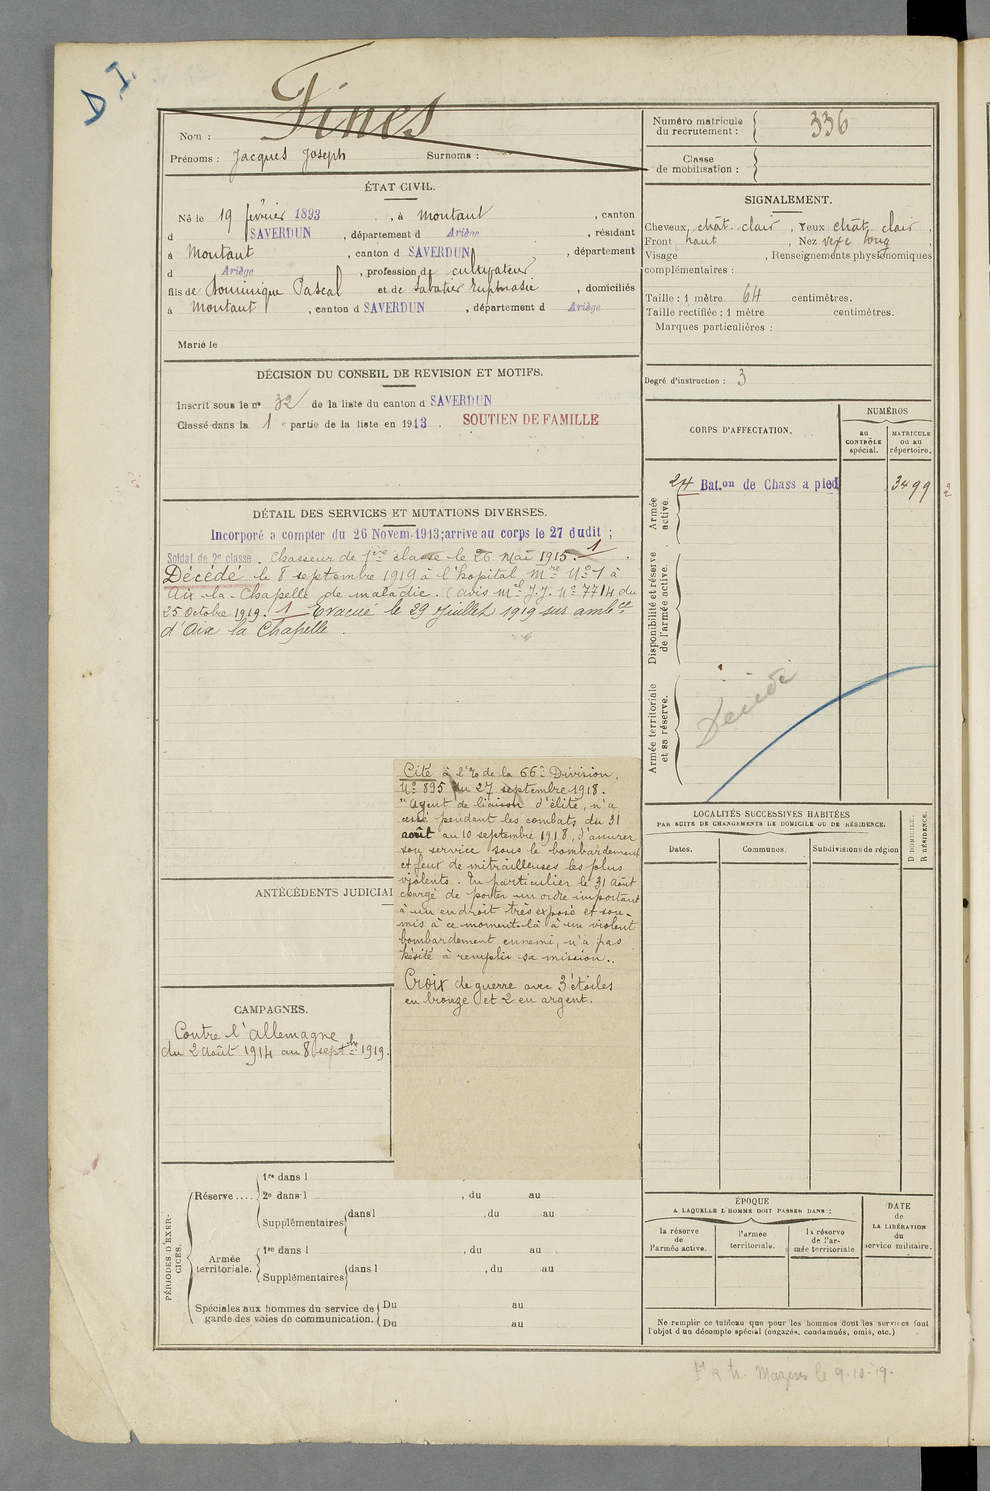 D I.
Nom : Fines
Prénoms : Jacques Joseph Surnoms :
Numéro matricule du recrutement : 336
Classe de mobilisation :
ÉTAT CIVIL.
Né le 19 février 1893, à Montaut, canton
d SAVERDUN, département d Ariége, résidant
à Montaut, canton d SAVERDUN, département
d Ariége, profession de cultivateur
fils de Dominique Pascal et de Sabatier Euphrasie, domiciliés
à Montaut, canton d SAVERDUN, département d Ariége
Marié le
SIGNALEMENT.
Cheveux chât. clair, Yeux chât. clair,
Front haut, Nez long,
Visage , Renseignements physionomiques
complémentaires :
Taille : 1 mètre 64 centimètres.
Taille rectifiée : 1 mètre centimètres.
Marques particulières :
Degré d'instruction : 3
DÉCISION DU CONSEIL DE REVISION ET MOTIFS.
Inscrit sous le n° 32 de la liste du canton d SAVERDUN
Classé dans la 1e partie de la liste en 1913. SOUTIEN DE FAMILLE
CORPS D'AFFECTATION.
NUMÉROS
au CONTRÔLE spécial.
MATRICULE ou au répertoire.
Armée active.
24 Bat.on de Chass a pied 3499 2
Disponibilité et réserve de l'armée active.
Armée territoriale et sa réserve.
Décédé
DÉTAIL DES SERVICES ET MUTATIONS DIVERSES.
Incorporé a compter du 26 Novem.1913; arrive au corps le 27 dudit ;
Soldat de 2e classe. Chasseur de 1ère classe le 26 Mai 1915. 1
Décédé le 8 septembre 1919 à l'hopital Mre No 1 à
Aix-la-Chapelle de maladie. (avis Mel J.J. No 7714 du
25 Octobre 1919. 1 Evacué le 29 Juillet 1919 sur ambce
d'Aix la Chapelle.
Cité à l'o de la 66e Division,
No 895 du 27 septembre 1918.
"Agent de liaison d'élite, n'a
cessé pendant les combats du 31
août au 10 septembre 1918, d'assurer
son service sous le bombardement
et feux de mitrailleuses les plus
violents. En particulier le 31 août
chargé de porter un ordre important
à un endroit très exposé et sou-
mis à ce moment-là à un violent
bombardement ennemi, n'a pas
hésité à remplir sa mission..
Croix de guerre avec 3 étoiles
en bronze et 2 en argent.
ANTÉCÉDENTS JUDICIAI
CAMPAGNES.
Contre l'Allemagne
du 2 août 1914 au 8 septbre 1919.
LOCALITÉS SUCCESSIVES HABITÉES
PAR SUITE DE CHANGEMENTS DE DOMICILE OU DE RÉSIDENCE.
Dates. Communes. Subdivisions de région
D DOMICILE.
R RÉSIDENCE.
PÉRIODES D'EXERCICES.
Réserve....
1re dans l
2e dans l , du au
Supplémentaires dans l , du au
Armée territoriale.
1re dans l , du au
Supplémentaires dans l , du au
Spéciales aux hommes du service de garde des voies de communication.
Du au
Du au
ÉPOQUE
A LAQUELLE L'HOMME DOIT PASSER DANS :
la réserve de l'armée active.
l'armée territoriale.
la réserve de l'armée territoriale.
DATE de LA LIBÉRATION du service militaire.
Ne remplir ce tableau que pour les hommes dont les services font
l'objet d'un décompte spécial (engagés, condamnés, omis, etc.)
Mazères le 9-10-19.